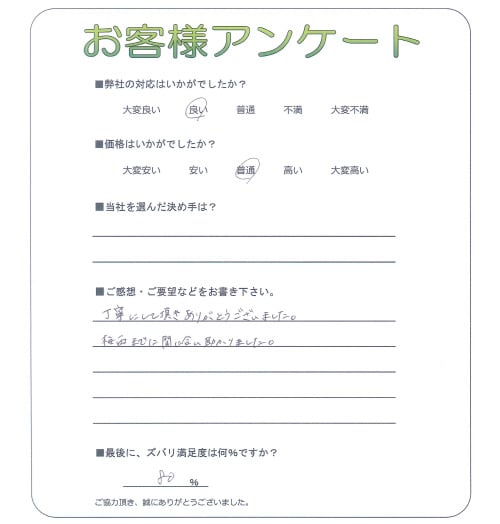 お客様アンケート
■弊社の対応はいかがでしたか？
大変良い 良い 普通 不満 大変不満
■価格はいかがでしたか？
大変安い 安い 普通 高い 大変高い
■当社を選んだ決め手は？
■ご感想・ご要望などをお書き下さい。
丁寧にして頂きありがとうございました。
梅雨までに間に合い助かりました。
■最後に、ズバリ満足度は何%ですか？
80 %
ご協力頂き、誠にありがとうございました。